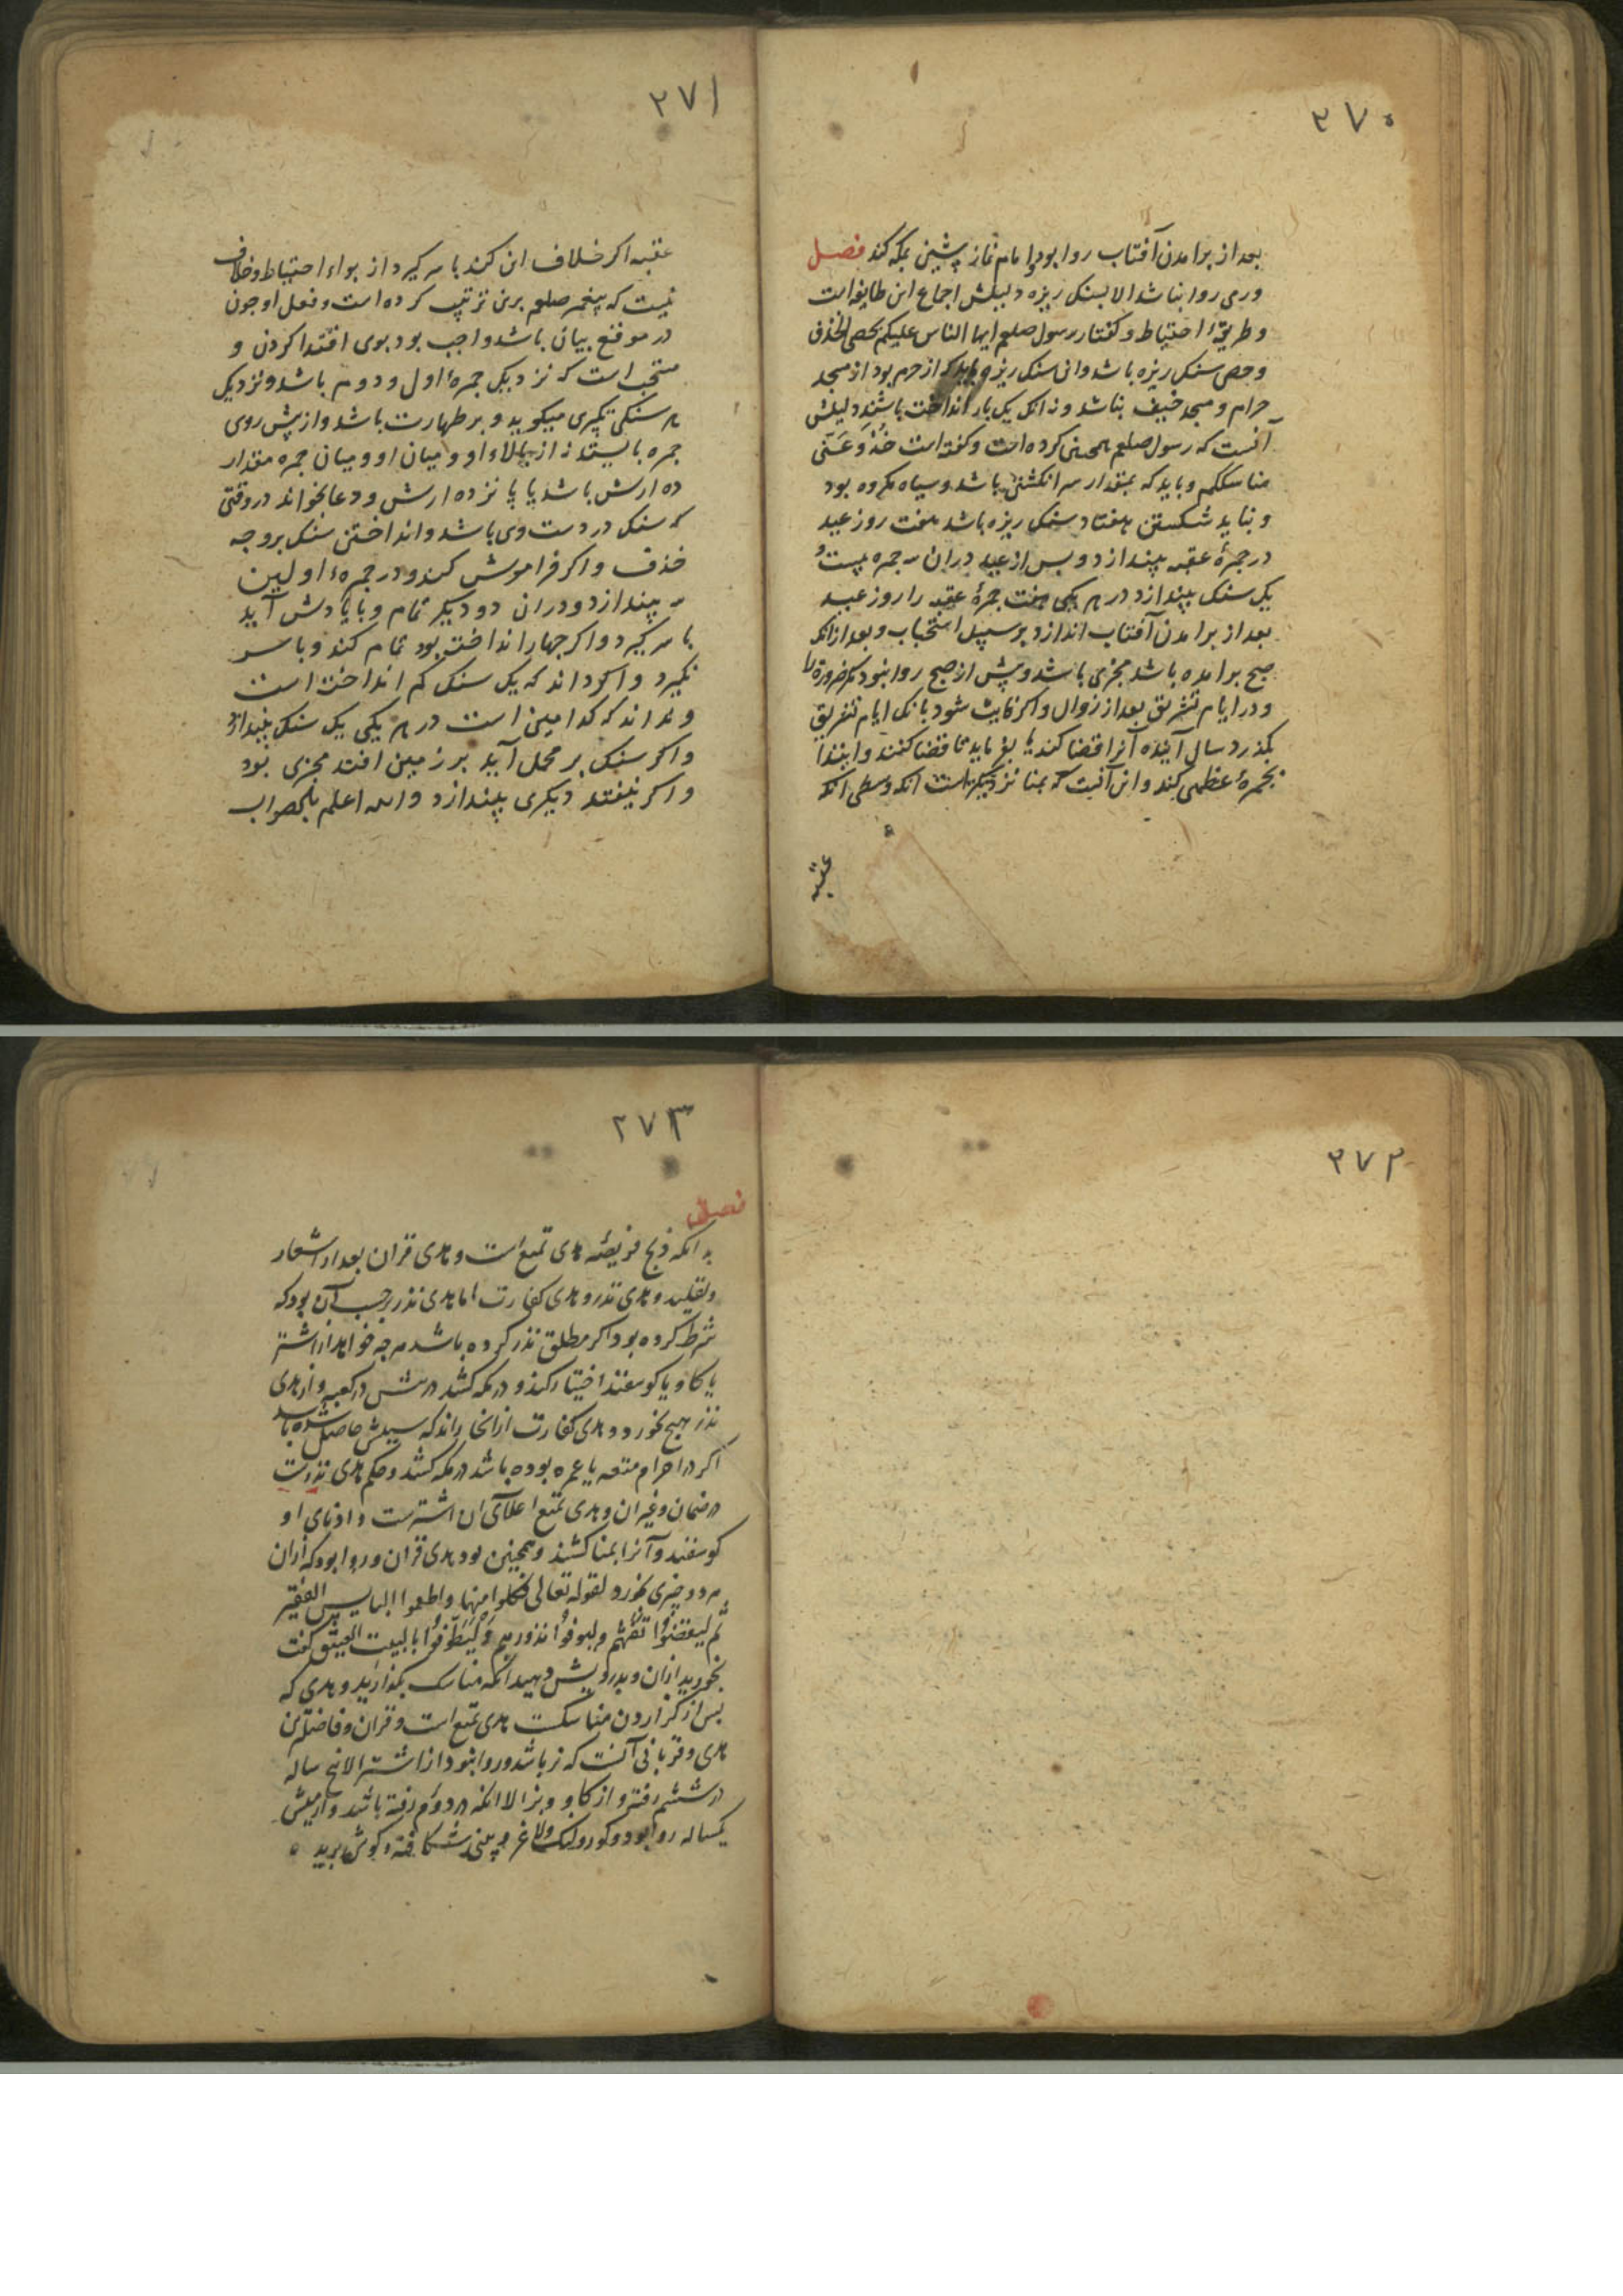 ۲۷۰
بعد از برامدن آفتاب روا بود و امام نماز پیشین بمکه کند فصل
ورمی روا نباشد الا بسنک ریزه دلیلش اجماع این طایفه است
و طریقهٔ احتیاط و کفتار رسول صلعم ایها الناس علیکم بحصی الخذف
وحصی سنک ریزه باشد و ان سنک ریزه باید که از حرم بود از مسجد
حرام و مسجد خیف نباشد و نه انک یک بار انداخته باشند دلیلش
آنست که رسول صلعم همچنین کرده است و کفته است خذوعنی
مناسککم و باید که بمقدار سر انکشتی باشد و سیاه مکروه بود
و نباید شکستن هفتاد سنک ریزه باشد هفت روز عید
در جمرهٔ عقبه بیندازد و بس از عید دران سه جمره بیست و
یک سنک بیندازد در هر یکی هفت جمرهٔ عقبه را روز عید
بعد از برامدن آفتاب اندازد بر سبیل استحباب و بعد ازانکه
صبح برامده باشد مجزی باشد و پیش از صبح روا نبود مکر ضرورة را
و در ایام تشریق بعد از زوال و اکر فایت شود بانک ایام تشریق
بکذرد سال آینده آنرا قضا کند یا بفرماید تا قضا کنند وابتدا
بجمرهٔ عظمی کند و این آنست که بمنا نزدیکتراست انکه وسطی انکه
عقبه
۲۷۱
عقبه اکر خلاف این کند با سر کیرد از برای احتیاط و خلاف
نیست که پیغمبر صلعم برین ترتیب کرده است و فعل او جون
در موقع بیان باشد واجب بود بوی اقتدا کردن و
مستحب است که نزدیک جمرهٔ اول و دوم باشد و نزدیک
هر سنکی تکبیری میکوید و بر طهارت باشد و از پیش روی
جمره بایستد نه از بالاء او و میان او و میان جمره مقدار
ده ارش باشد یا پانزده ارش و دعا بخواند در وقتی
که سنک در دست وی باشد و انداختن سنک بر وجه
خذف و اکر فراموش کند و در جمرهٔ اولین
سه بیندازد و دران دو دیکر تمام و با یادش آید
با سر کیرد و اکر جهار انداخته بود تمام کند و با سر
نکیرد و اکر داند که یک سنک کم انداخته است
و نداند که کدامین است در هر یکی یک سنک بیندازد
و اکر سنک بر محمل آید بر زمین افتد مجزی بود
و اکر نیفتد دیکری بیندازد والله اعلم بالصواب
۲۷۲
۲۷۳
فصل
بدانکه ذبح فریضه هدی تمتع است و هدی قران بعد از اشعار
و تقلید و هدی نذر و هدی کفارت اما هدی نذر برحسب آن بود که
شرط کرده بود اکر مطلق نذر کرده باشد هرجه خواهد از اشتر
یا کاو یا کوسفند اختیار کند و در مکه کشد در پیش در کعبه و از هدی
نذر هیچ نخورد و هدی کفارت از انجا راند که سببش حاصل شده باشد
اکر در احرام متعه یا عمره بوده باشد در مکه کشد و حکم هدی نذرست
در ضمان و غیر ان و هدی تمتع اعلای ان اشترست و ادنای او
کوسفند و آنرا بمنا کشند و همچنین بود هدی قران و روا بود که ازان
هر دو چیزی خورد لقوله تعالی فکلوا منها واطعموا البایس الفقیر
ثم لیقضوا تفثهم ولیوفوا نذورهم ولیطوفوا بالبیت العتیق کفت
بخورید ازان و بدرویش دهید انکه مناسک بکذارید و هدی که
بس از کزاردن مناسکست هدی تمتع است و قران و فاضلترین
هدی و قربانی آنست که نر باشد و روا نبود از اشتر الا پنج ساله
در ششم رفته و از کاو و بز الا انکه در دوم رفته باشد و از میش
یکساله روا بود و کور و لنک و لاغر و بینی شکافته و کوش برید